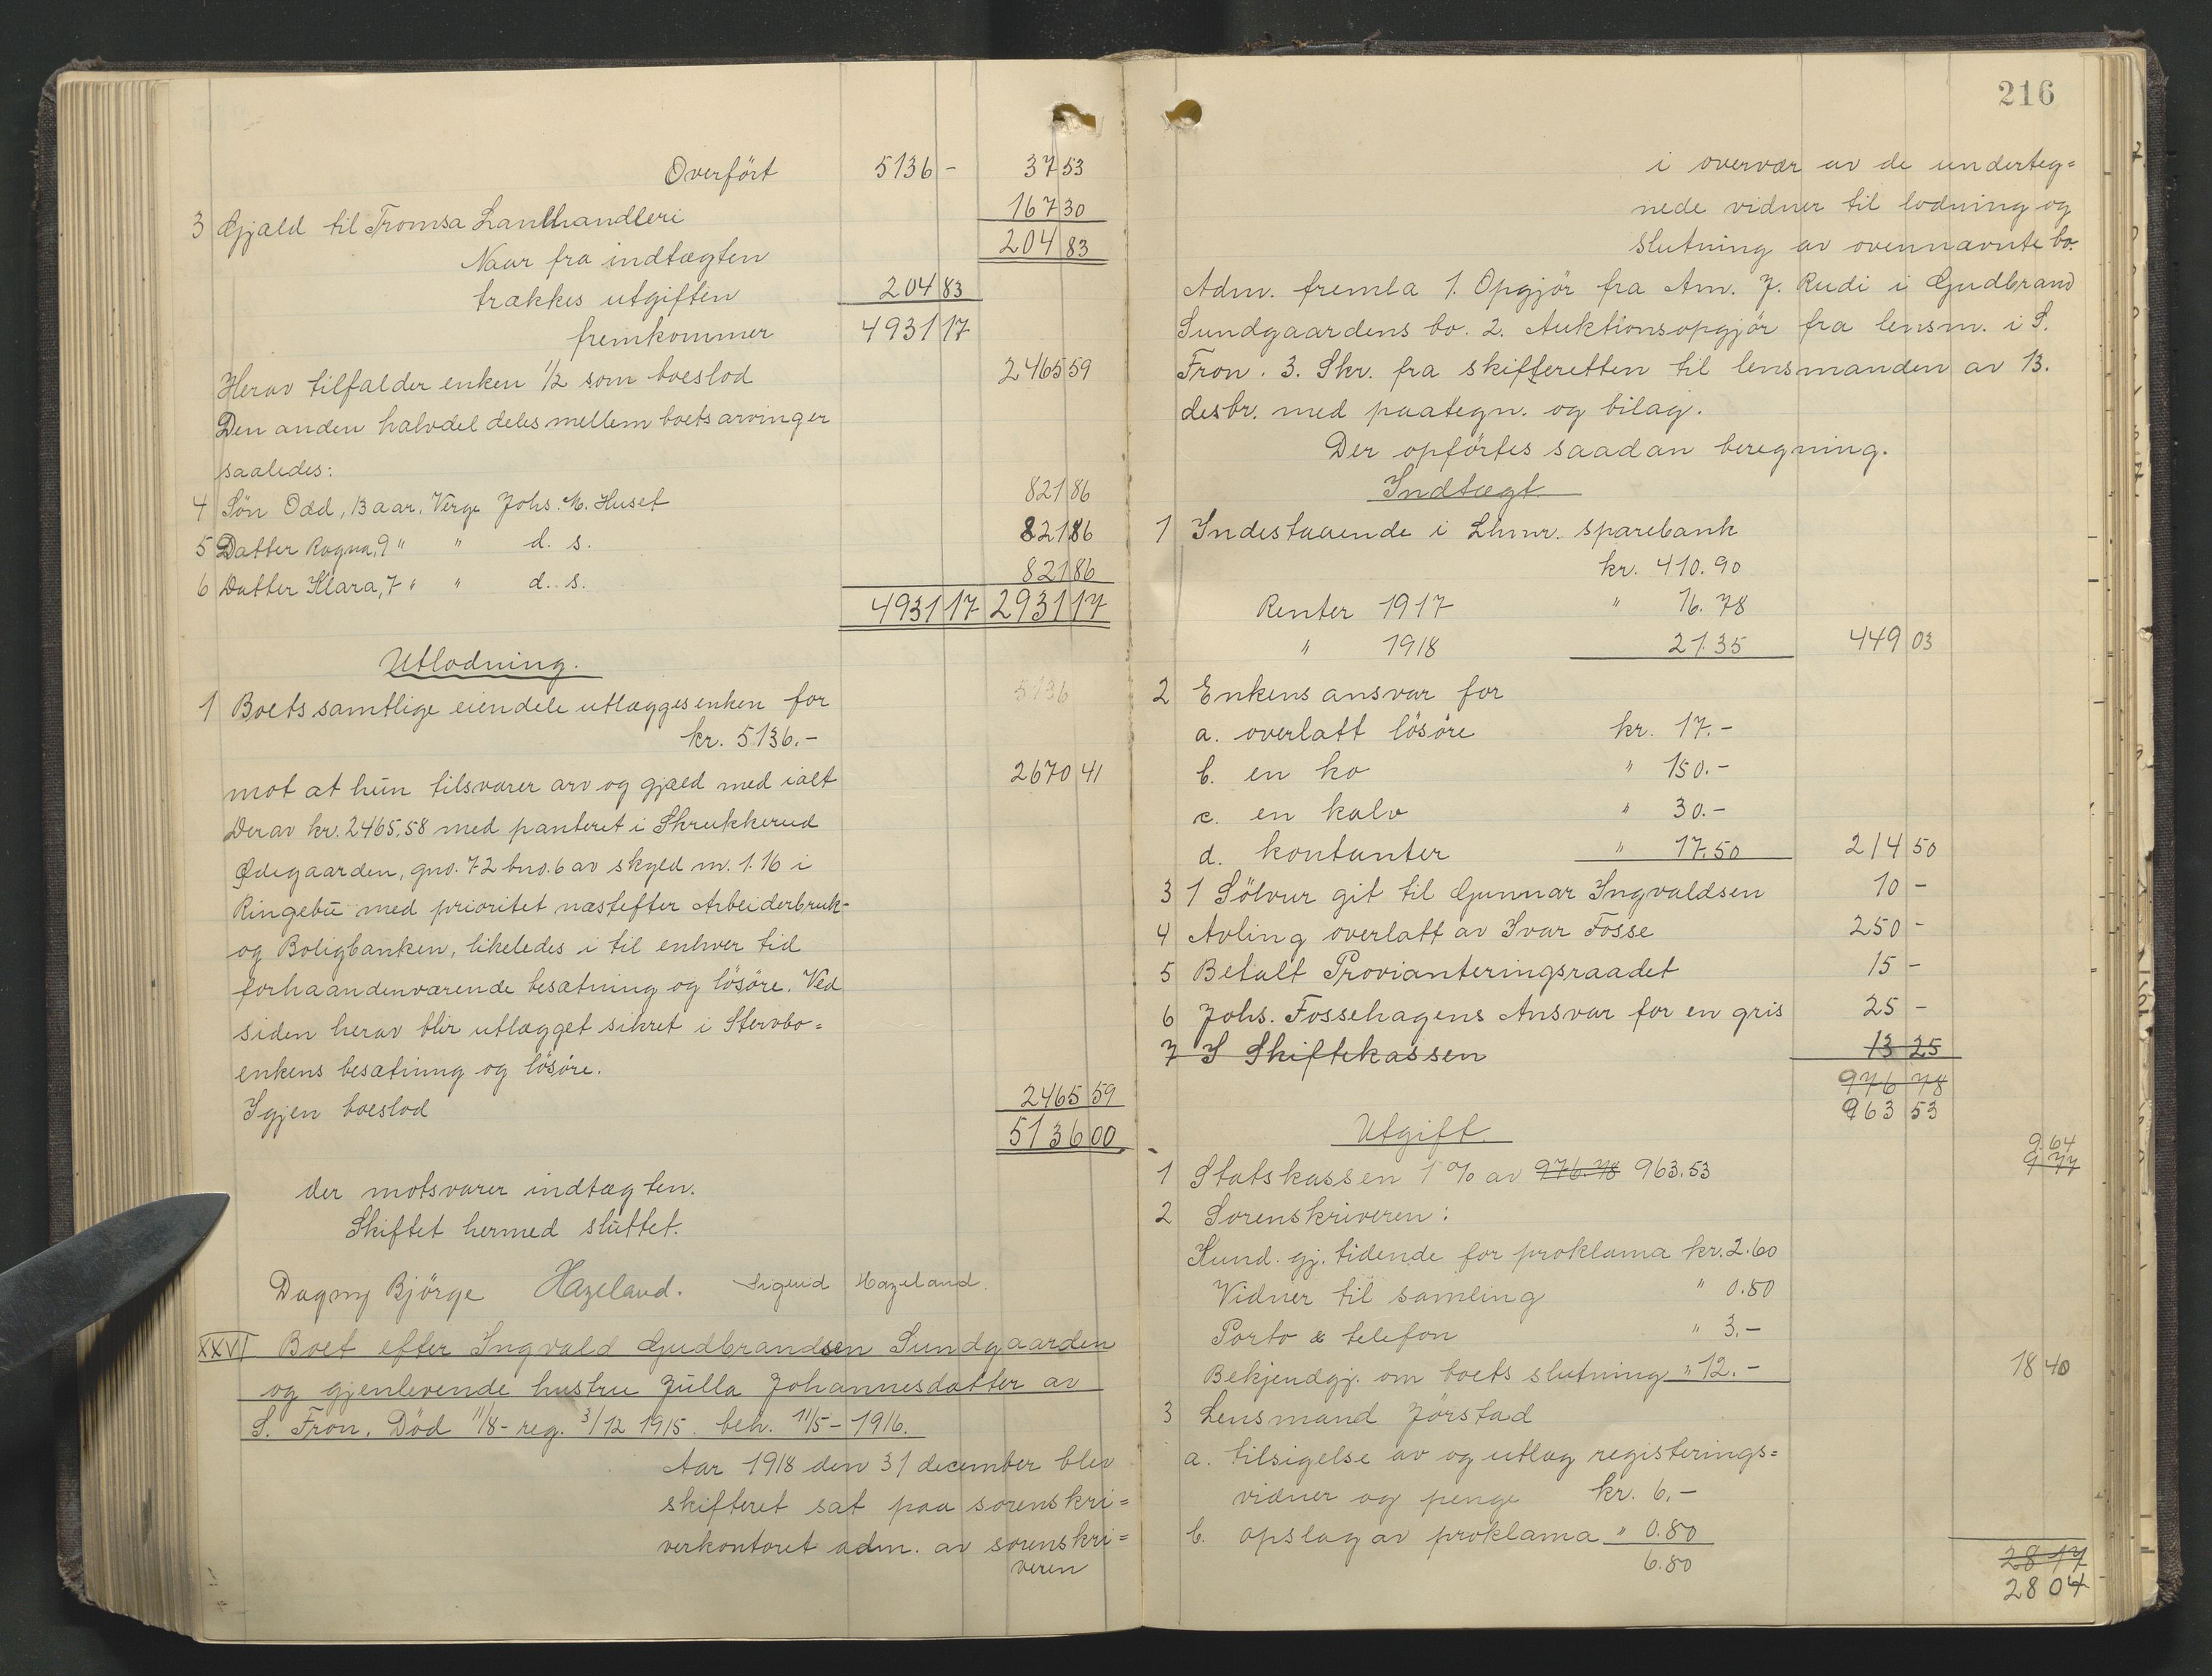 Overført 5136 - 37 53
3 Gjæld til Tromsa Landhandleri 167 30
Naar fra indtægten 204 83
trækkes utgiften 204 83
fremkommer 4931 17
Herav tilfalder enken 1/2 som boeslod 2465 59
Den anden halvdel deles mellem boets arvinger
saaledes:
4 Søn Odd, 13 aar, Verge Johs. M. Huset 821 86
5 Datter Ragna, 9 " " d. s. 821 86
6 Datter Klara, 7 " " d. s. 821 86
4931 17 2931 17
Utlodning.
1 Boets samtlige eiendele utlægges enken for 5136
kr. 5136.-
mot at hun tilsvarer arv og gjæld med ialt 2670 41
Derav kr. 2465,58 med panteret i Skrukkerud
Ødegaarden, gno. 72 bno. 6 av skyld m. 1.16 i
Ringebu med prioritet næstefter Arbeiderbruk-
og Boligbanken, likeledes i til enhver tid
forhaandenværende besætning og løsøre. Ved
siden herav blir utlægget sikret i Stervbo=
enkens besætning og løsøre.
Igjen boeslod 2465 59
5136 00
der motsvarer indtægten.
Skiftet hermed sluttet.
Dagny Bjørge Hazeland. Sigrid Hazeland.
XXVI Boet efter Ingvald Gudbrandsen Sundgaarden
og gjenlevende hustru Julla Johannesdatter av
S. Fron. Død 11/8 - reg. 3/12 1915. beh. 11/5 - 1916.
Aar 1918 den 31 december blev
skifteret sat paa sorenskri=
verkontoret adm. av sorenskri=
veren
216
i overvær av de underteg=
nede vidner til lodning og
slutning av ovennævnte bo.
Adm. fremla 1. Opgjør fra Am. J. Rudi i Gudbrand
Sundgaardens bo. 2. Auktionsopgjør fra lensm. i S.
Fron. 3. Skr. fra skifteretten til lensmanden av 13.
desbr. med paategn. og bilag.
Der opførtes saadan beregning.
Indtægt
1 Indestaaende i Lhmr. sparebank
kr. 410.90
Renter 1917 " 16.78
" 1918 21.35 449 03
2 Enkens ansvar for
a. overlatt løsøre kr. 17.-
b. en ko " 150.-
c. en kalv " 30.-
d. kontanter " 17.50 214 50
3 1 Sølvur git til Gunnar Ingvaldsen 10 -
4 Avling overlatt av Ivar Fosse 250 -
5 Betalt Provianteringsraadet 15 -
6 Johs. Fossehagens Ansvar for en gris 25 -
7 I Skiftekassen 13 25
976 78
963 53
Utgift.
9.64
1 Statskassen 1 % av 976.78 963.53 9 77
2 Sorenskriveren:
Kund. gj. tidende for proklama kr. 2.60
Vidner til samling " 0.80
Porto & telefon " 3.-
Bekjendgj. om boets slutning " 12.- 18 40
3 Lensmand Jørstad
a. tilsigelse av og utlæg registerings=
vidner og penge kr. 6,-
b. opslag av proklama " 0.80
6.80
28 17
28 04